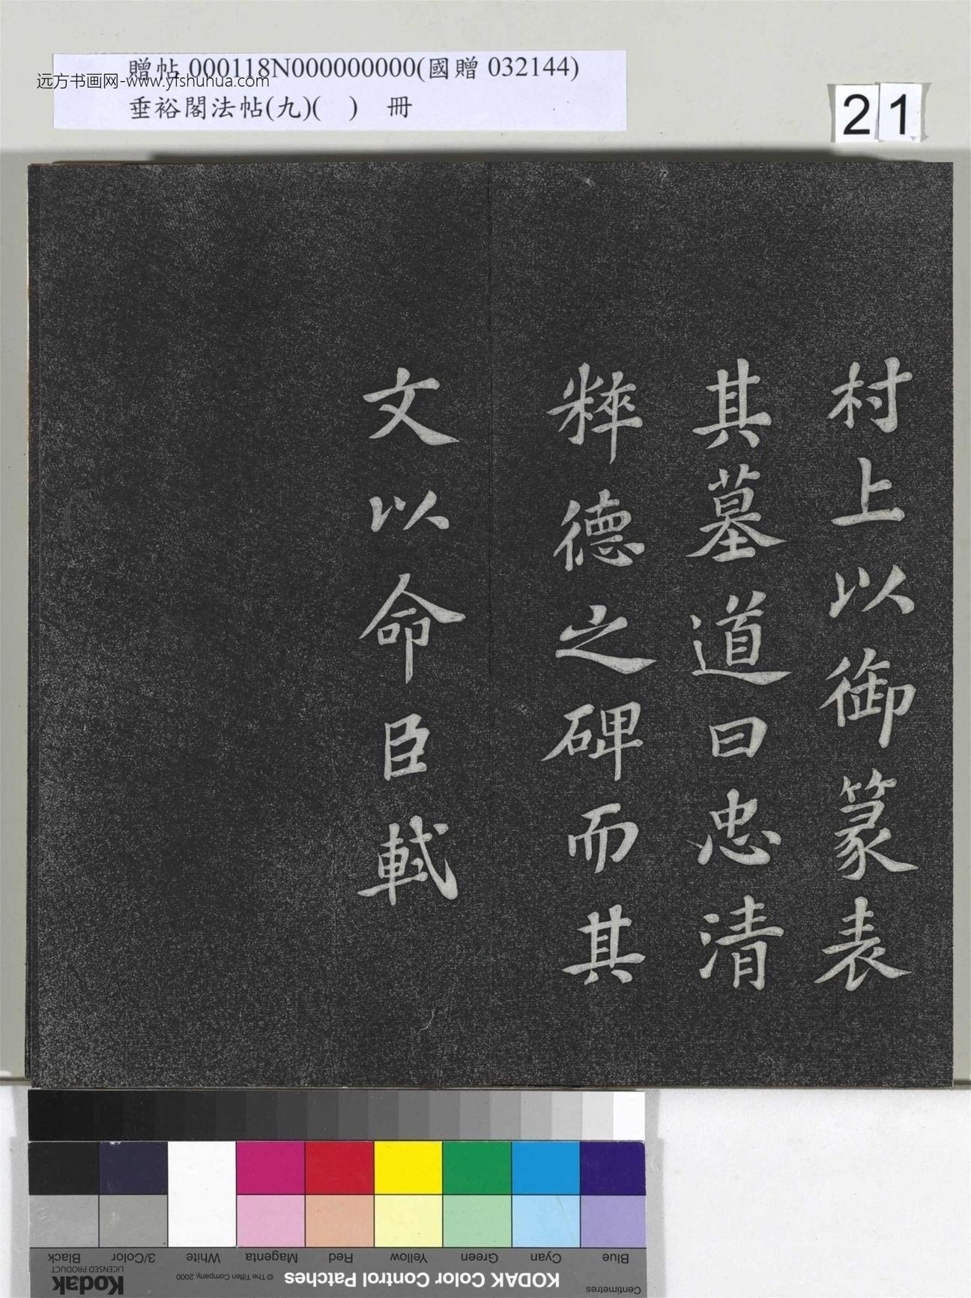 贈帖 000118N000000000(國贈 032144)
远方书画网-www.yfshuhua.com
垂裕閣法帖(九)( ) 冊
21
村上以御篆表
其墓道曰忠清
粹德之碑而其
文以命臣軾
Black
3/Color
White
Magenta
Red
Yellow
Green
Cyan
Blue
Kodak
LICENSED PRODUCT
© The Tiffen Company, 2000
KODAK Color Control Patches
Centimetres